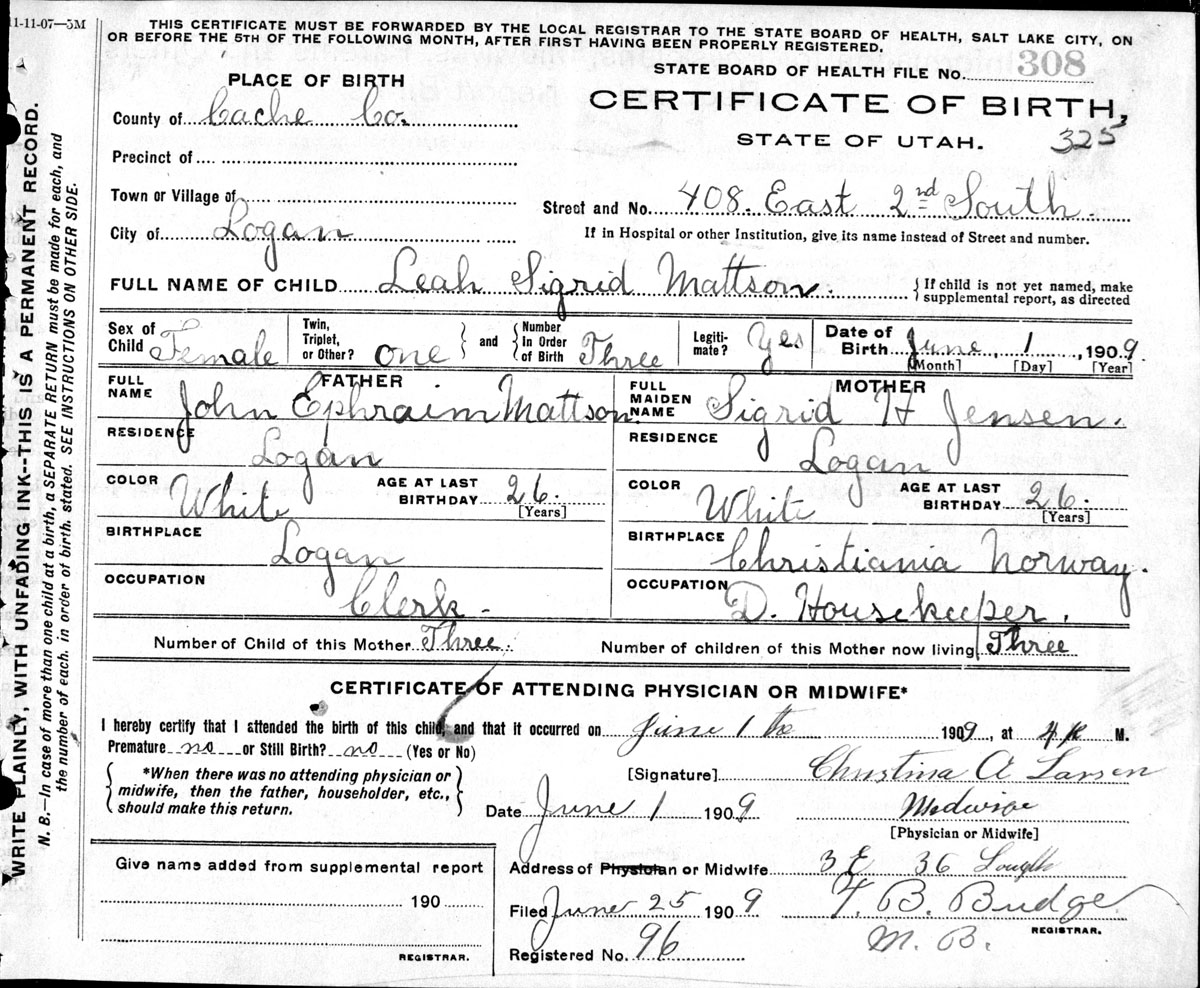 11-11-07—5M
THIS CERTIFICATE MUST BE FORWARDED BY THE LOCAL REGISTRAR TO THE STATE BOARD OF HEALTH, SALT LAKE CITY, ON
OR BEFORE THE 5TH OF THE FOLLOWING MONTH, AFTER FIRST HAVING BEEN PROPERLY REGISTERED.
STATE BOARD OF HEALTH FILE No. 308
PLACE OF BIRTH
CERTIFICATE OF BIRTH,
County of Cache Co.
STATE OF UTAH. 325
Precinct of
Town or Village of
Street and No. 408. East 2nd South.
City of Logan
If in Hospital or other Institution, give its name instead of Street and number.
FULL NAME OF CHILD Leah Sigrid Mattson. { If child is not yet named, make
supplemental report, as directed
Sex of Child Female Twin, Triplet, or Other? one } and { Number In Order of Birth Three Legiti-mate? Yes Date of Birth June, 1, 1909.
[Month] [Day] [Year]
FATHER MOTHER
FULL NAME John Ephraim Mattson FULL MAIDEN NAME Sigrid H Jensen.
RESIDENCE Logan RESIDENCE Logan
COLOR White AGE AT LAST BIRTHDAY 26. [Years] COLOR White AGE AT LAST BIRTHDAY 26. [Years]
BIRTHPLACE Logan BIRTHPLACE Christiania Norway.
OCCUPATION Clerk - OCCUPATION D. Housekeeper.
Number of Child of this Mother Three. Number of children of this Mother now living Three
CERTIFICATE OF ATTENDING PHYSICIAN OR MIDWIFE*
I hereby certify that I attended the birth of this child, and that it occurred on June 1 1909, at 4 M.
Premature no or Still Birth? no (Yes or No)
{ *When there was no attending physician or
midwife, then the father, householder, etc.,
should make this return. }
[Signature] Christina A Larsen
Date June 1 1909 Midwife
[Physician or Midwife]
Give name added from supplemental report
190
REGISTRAR.
Address of Physician or Midwife 3 E 36 South
Filed June 25 1909 T. B. Budge
REGISTRAR.
M. B.
Registered No. 96
WRITE PLAINLY, WITH UNFADING INK--THIS IS A PERMANENT RECORD.
N. B.—In case of more than one child at a birth, a SEPARATE RETURN must be made for each, and
the number of each, in order of birth, stated. SEE INSTRUCTIONS ON OTHER SIDE.